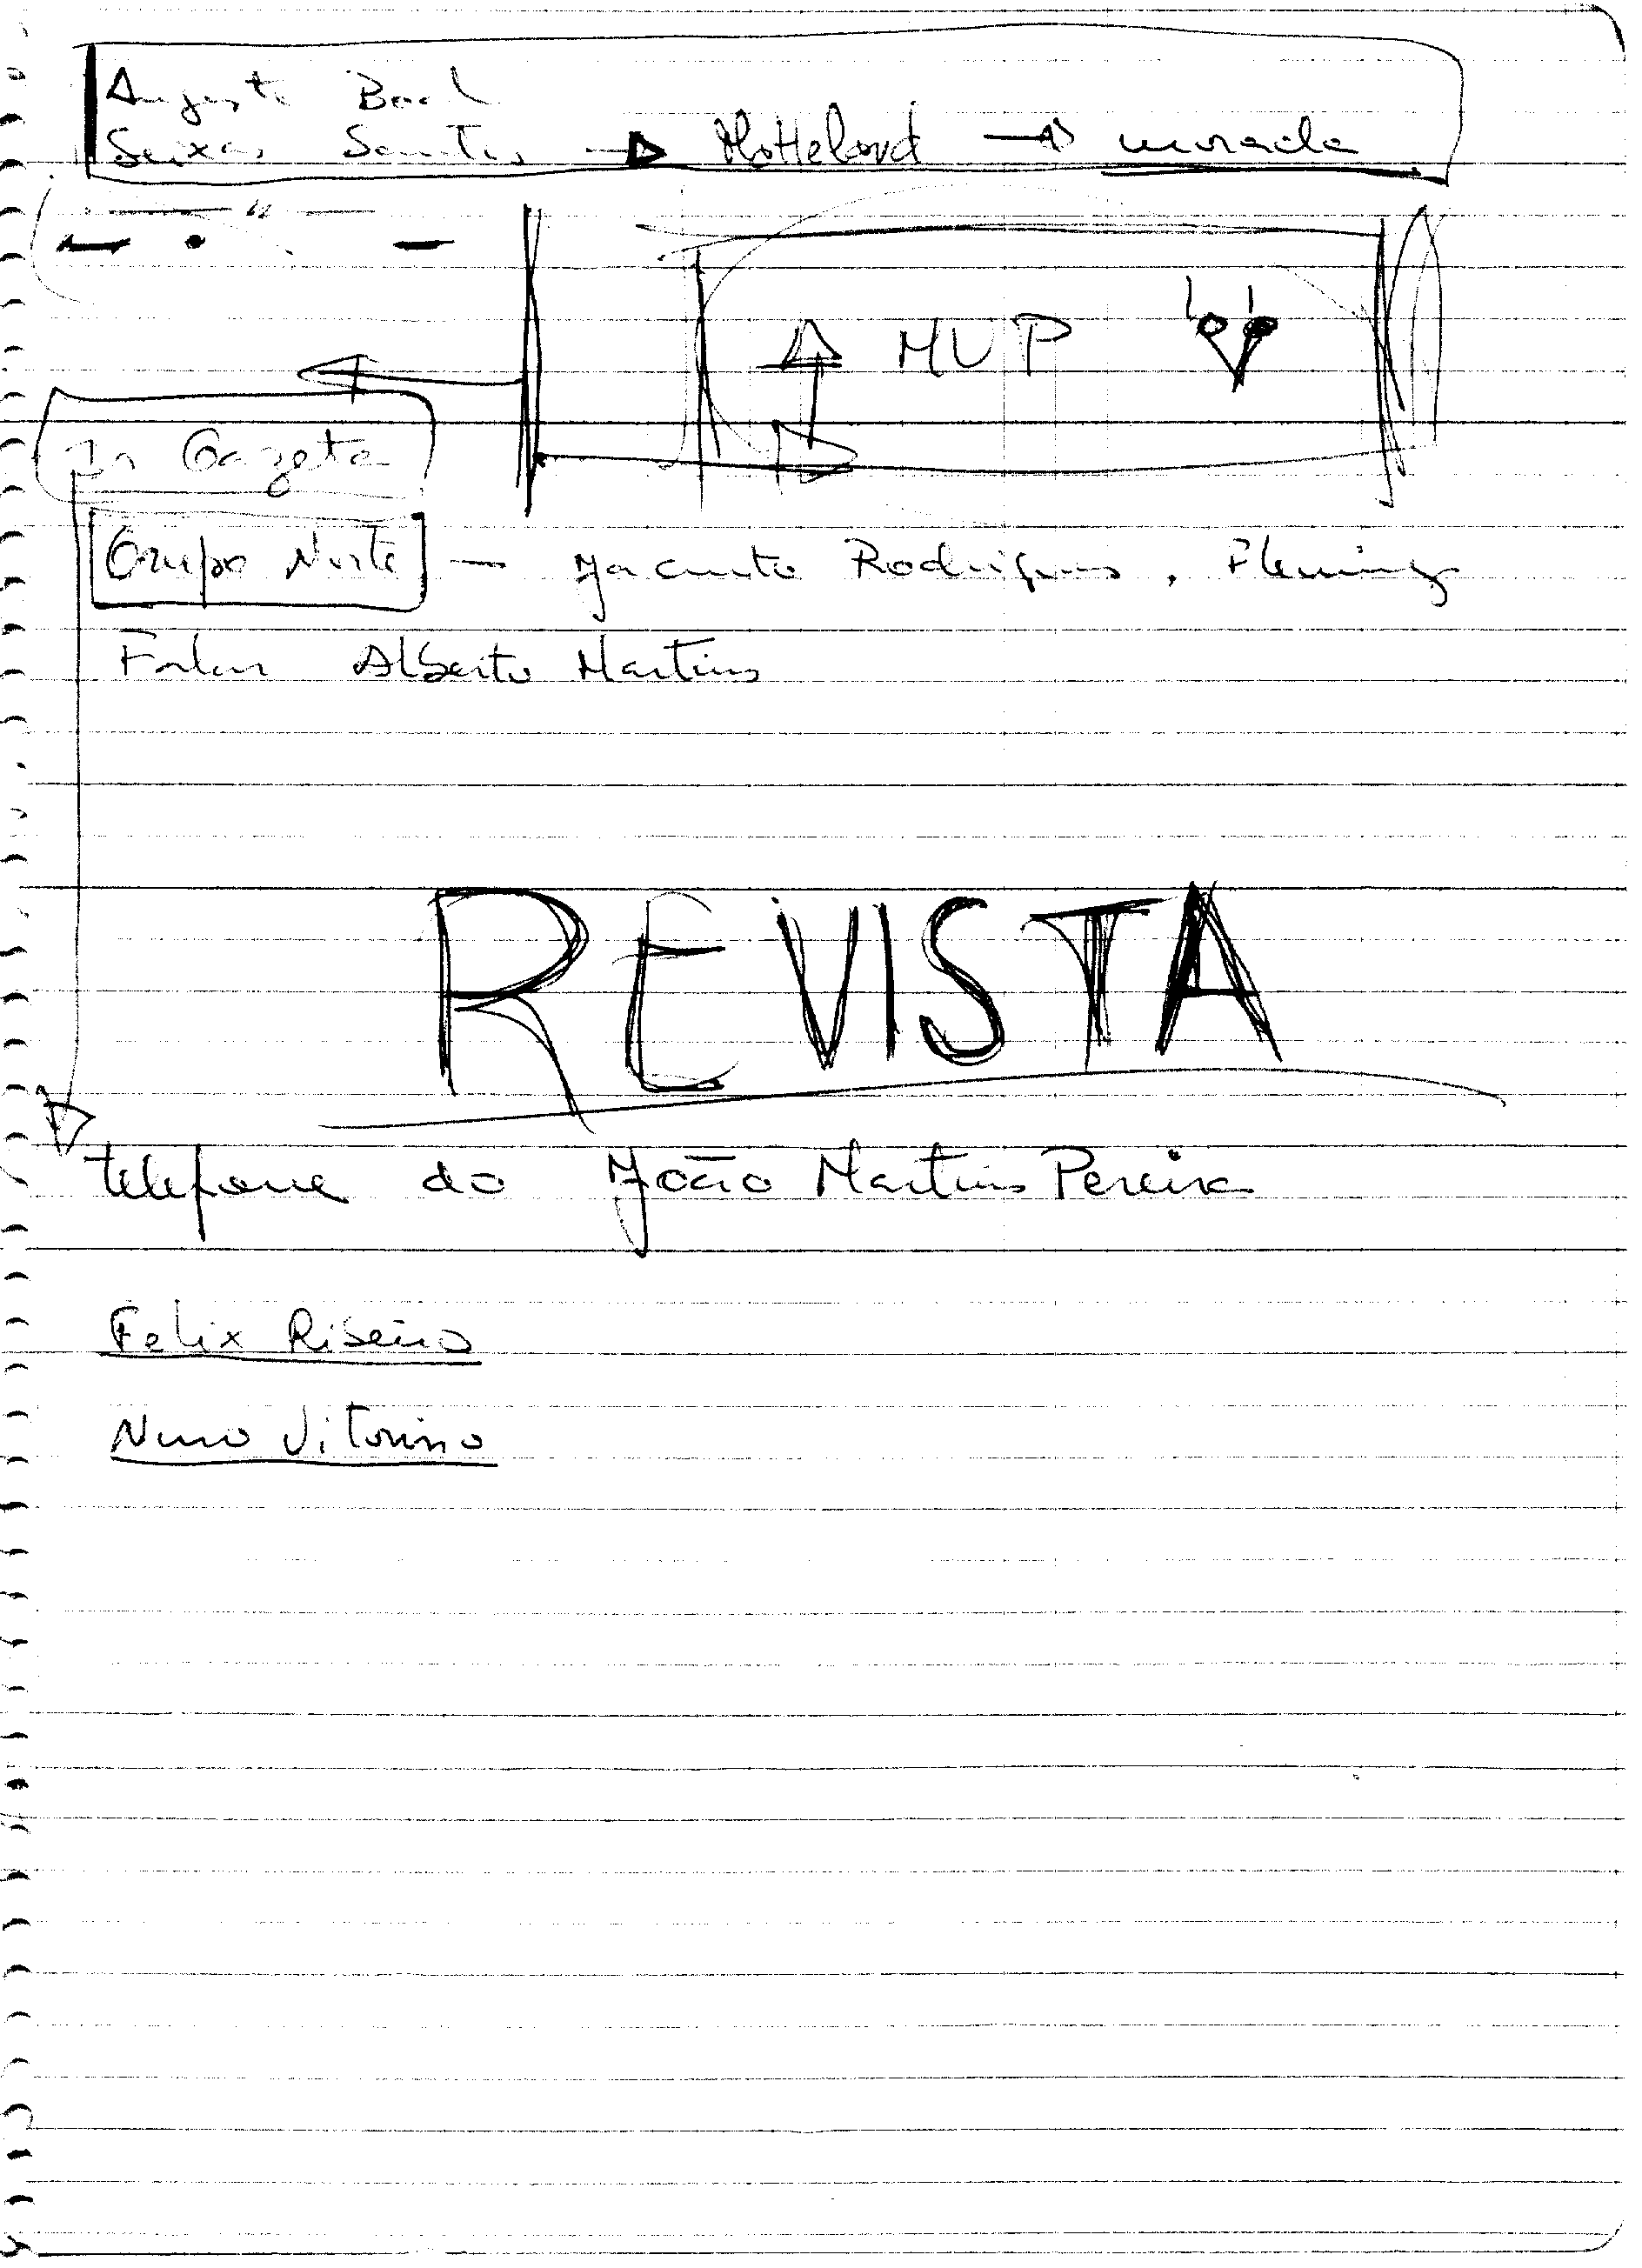 Augusto Boal
Seixas Santos → Mattelard → morada
— " —
MVP
Da Gazeta
Grupo Norte — Jacinto Rodrigues, Fleming
Falar Alberto Martins
REVISTA
telefone do João Martins Pereira
Felix Ribeiro
Nuno Vitorino